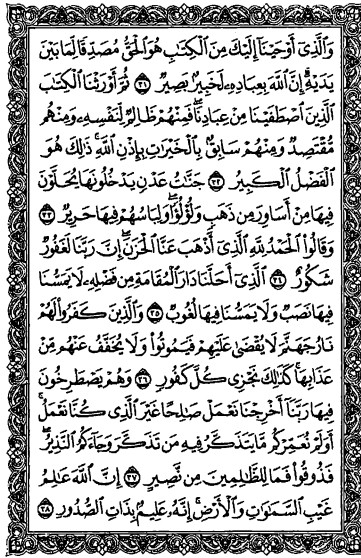 وَالَّذِي أَوْحَيْنَا إِلَيْكَ مِنَ الْكِتَٰبِ هُوَ الْحَقُّ مُصَدِّقًا لِّمَا بَيْنَ
يَدَيْهِ إِنَّ اللَّهَ بِعِبَادِهِ لَخَبِيرٌ بَصِيرٌ ٣١ ثُمَّ أَوْرَثْنَا الْكِتَٰبَ
الَّذِينَ اصْطَفَيْنَا مِنْ عِبَادِنَا فَمِنْهُمْ ظَالِمٌ لِّنَفْسِهِ وَمِنْهُم
مُّقْتَصِدٌ وَمِنْهُمْ سَابِقٌ بِالْخَيْرَاتِ بِإِذْنِ اللَّهِ ذَٰلِكَ هُوَ
الْفَضْلُ الْكَبِيرُ ٣٢ جَنَّٰتُ عَدْنٍ يَدْخُلُونَهَا يُحَلَّوْنَ
فِيهَا مِنْ أَسَاوِرَ مِن ذَهَبٍ وَلُؤْلُؤًا وَلِبَاسُهُمْ فِيهَا حَرِيرٌ ٣٣
وَقَالُوا الْحَمْدُ لِلَّهِ الَّذِي أَذْهَبَ عَنَّا الْحَزَنَ إِنَّ رَبَّنَا لَغَفُورٌ
شَكُورٌ ٣٤ الَّذِي أَحَلَّنَا دَارَ الْمُقَامَةِ مِن فَضْلِهِ لَا يَمَسُّنَا
فِيهَا نَصَبٌ وَلَا يَمَسُّنَا فِيهَا لُغُوبٌ ٣٥ وَالَّذِينَ كَفَرُوا لَهُمْ
نَارُ جَهَنَّمَ لَا يُقْضَىٰ عَلَيْهِمْ فَيَمُوتُوا وَلَا يُخَفَّفُ عَنْهُم مِّنْ
عَذَابِهَا كَذَٰلِكَ نَجْزِي كُلَّ كَفُورٍ ٣٦ وَهُمْ يَصْطَرِخُونَ
فِيهَا رَبَّنَا أَخْرِجْنَا نَعْمَلْ صَٰلِحًا غَيْرَ الَّذِي كُنَّا نَعْمَلُ
أَوَلَمْ نُعَمِّرْكُم مَّا يَتَذَكَّرُ فِيهِ مَن تَذَكَّرَ وَجَاءَكُمُ النَّذِيرُ
فَذُوقُوا فَمَا لِلظَّٰلِمِينَ مِن نَّصِيرٍ ٣٧ إِنَّ اللَّهَ عَٰلِمُ
غَيْبِ السَّمَٰوَٰتِ وَالْأَرْضِ إِنَّهُ عَلِيمٌ بِذَاتِ الصُّدُورِ ٣٨